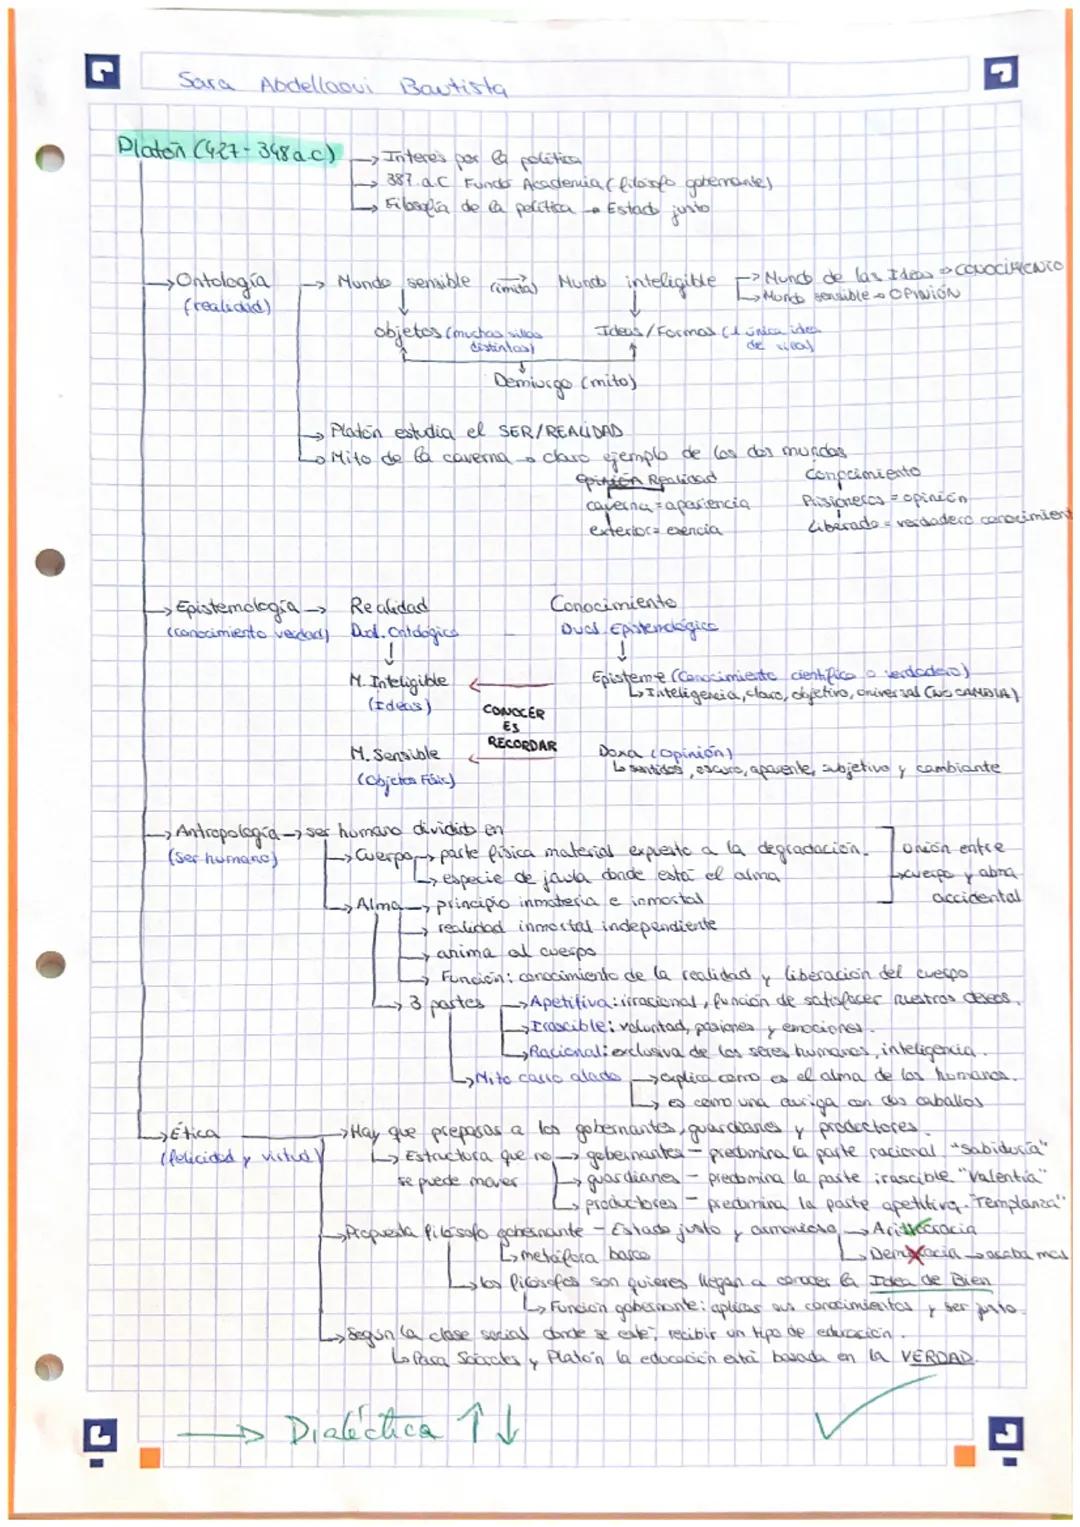 Sara Abdellaoui Bautista
Platón (427-348 a.c) → Interés por la política
→ 387 a.C Fundó Academia (filósofo gobernante)
→ Filosofía de la política → Estado justo
→ Ontología → Mundo sensible (imita) Mundo inteligible → Mundo de las Ideas ⇒ CONOCIMIENTO
(realidad) → Mundo sensible → OPINIÓN
objetos (muchas sillas distintas) Ideas/Formas (1 única idea de silla)
Demiurgo (mito)
→ Platón estudia el SER/REALIDAD
→ Mito de la caverna → claro ejemplo de los dos mundos
Opinión Realidad Conocimiento
caverna = apariencia Prisioneros = opinión
exterior = esencia Liberado = verdadero conocimient
→ Epistemología → Realidad Conocimiento
(conocimiento verdad) Dual. Ontológico Dual Epistemológico
M. Inteligible ← Episteme (Conocimiento científico o verdadero)
(Ideas) ↳ Inteligencia, claro, objetivo, universal (NO CAMBIA)
CONOCER
ES
RECORDAR
M. Sensible ← Doxa (opinión)
(Objetos Físic) ↳ sentidos, oscuro, aparente, subjetivo y cambiante
→ Antropología → ser humano dividido en
(ser humano) → Cuerpo → parte física material expuesto a la degradación.
↳ especie de jaula donde está el alma
unión entre
→ cuerpo y alma
accidental
→ Alma → principio inmateria e inmortal
→ realidad inmortal independiente
→ anima al cuerpo
→ Función: conocimiento de la realidad y liberación del cuerpo
→ 3 partes → Apetitiva: irracional, función de satisfacer nuestros deseos.
→ Irascible: voluntad, pasiones y emociones.
→ Racional: exclusiva de los seres humanos, inteligencia.
→ Mito carro alado → explica como es el alma de los humanos.
→ es como una auriga con dos caballos
→ Ética → Hay que preparar a los gobernantes, guardianes y productores.
(felicidad y virtud) ↳ Estructura que no → gobernantes - predomina la parte racional. "Sabiduría"
se puede mover → guardianes - predomina la parte irascible "Valentía"
→ productores - predomina la parte apetitiva. "Templanza"
→ Propuesta filósofo gobernante - Estado justo y armonioso → Aristocracia
↳ metáfora barco → Democracia → acaba mal
↳ los filósofos son quienes llegan a conocer la Idea de Bien
↳ Función gobernante: aplicar sus conocimientos y ser justo.
→ Según la clase social donde se esté, recibir un tipo de educación.
↳ Para Sócrates y Platón la educación está basada en la VERDAD.
→ Dialéctica ↑↓